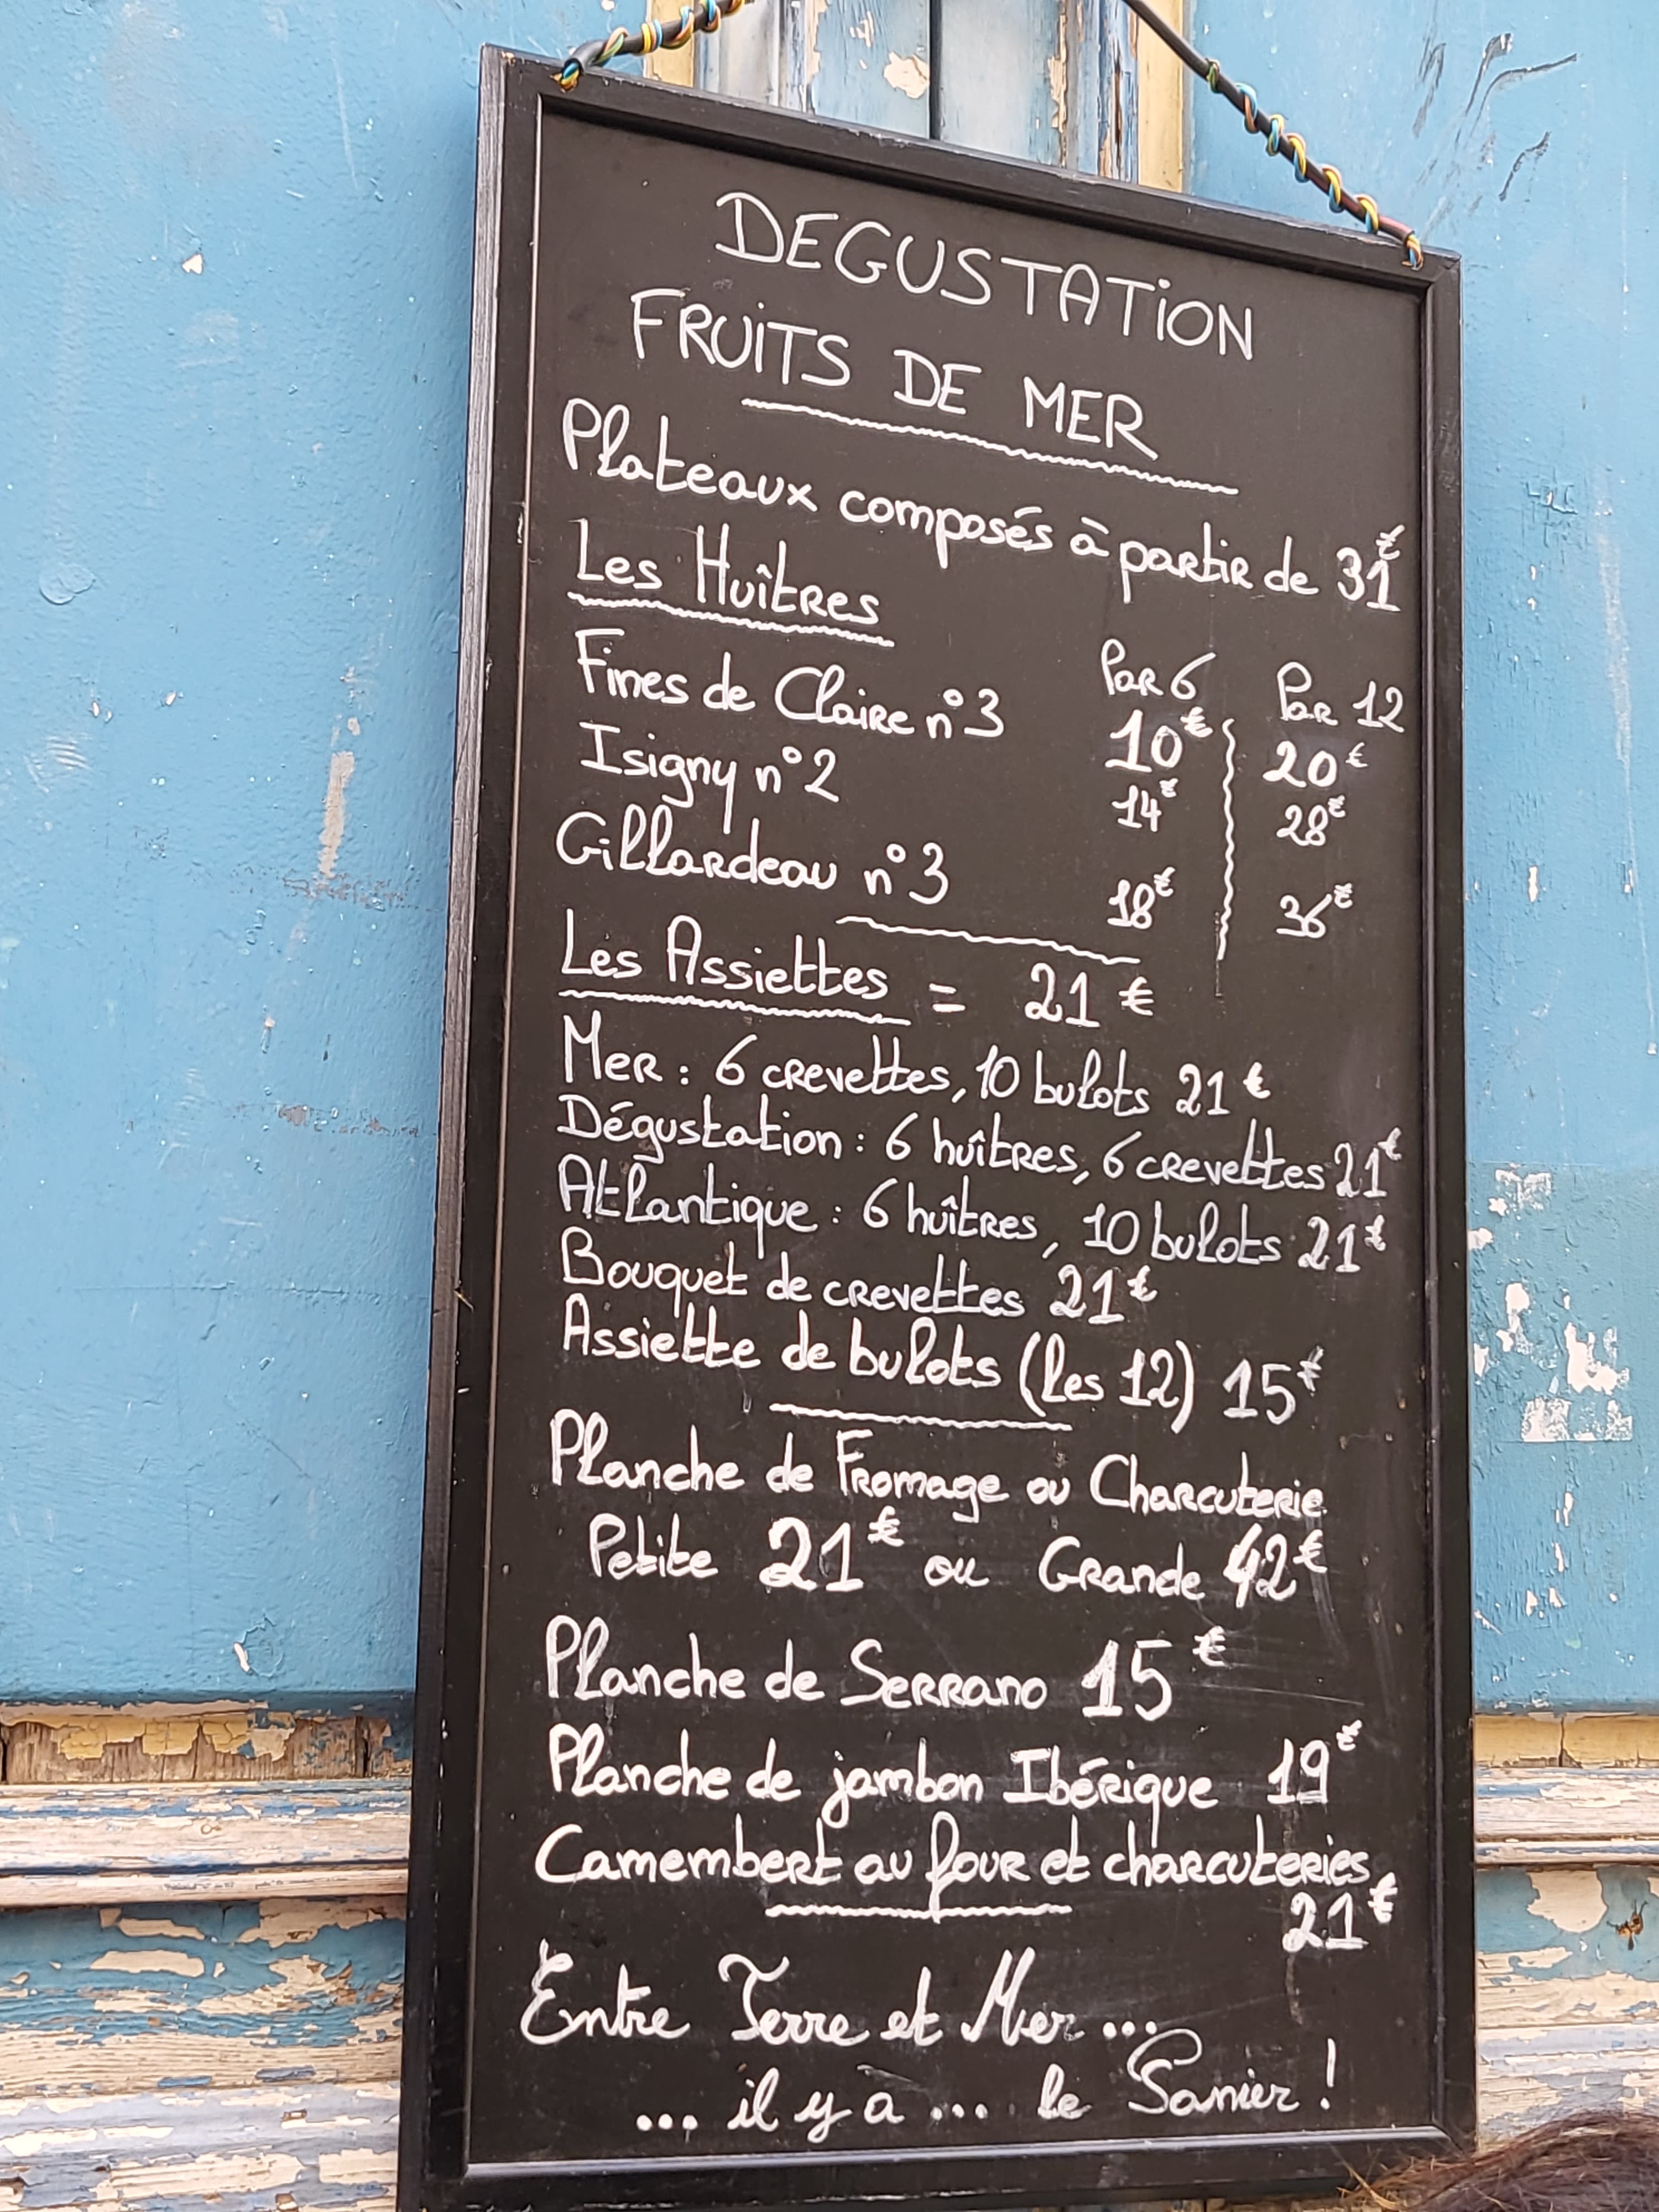 DEGUSTATiON
FRUiTS DE MER
Plateaux composés à partir de 31€
Les Huîtres
Par 6 Par 12
Fines de Claire n°3 10€ 20€
Isigny n°2 14€ 28€
Gillardeau n°3 18€ 36€
Les Assiettes = 21 €
Mer : 6 crevettes, 10 bulots 21 €
Dégustation : 6 huîtres, 6 crevettes 21€
Atlantique : 6 huîtres, 10 bulots 21€
Bouquet de crevettes 21€
Assiette de bulots (les 12) 15€
Planche de Fromage ou Charcuterie
Petite 21€ ou Grande 42€
Planche de Serrano 15€
Planche de jambon Ibérique 19€
Camembert au four et charcuteries
21€
Entre Terre et Mer ...
... il y a ... le Panier !